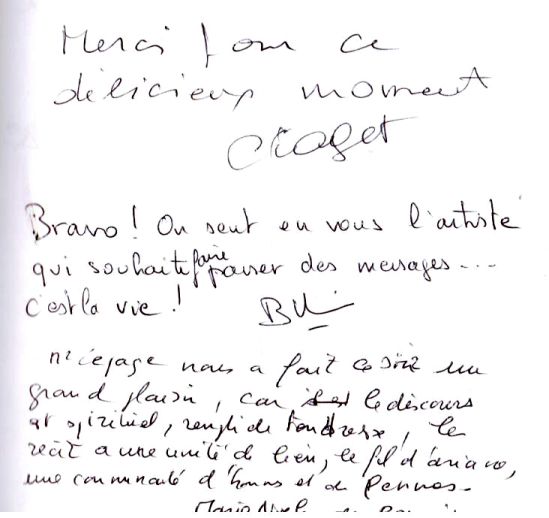 Merci pour ce
délicieux moment
Bravo! On sent en vous l'artiste
qui souhaite faire passer des messages...
c'est la vie!
nous a fait ce soir un
grand plaisir, car le discours
est spirituel, rempli de tendresse, le
récit a une unité de lieu, le fil d'ariane,
une communauté d'hommes et de femmes.